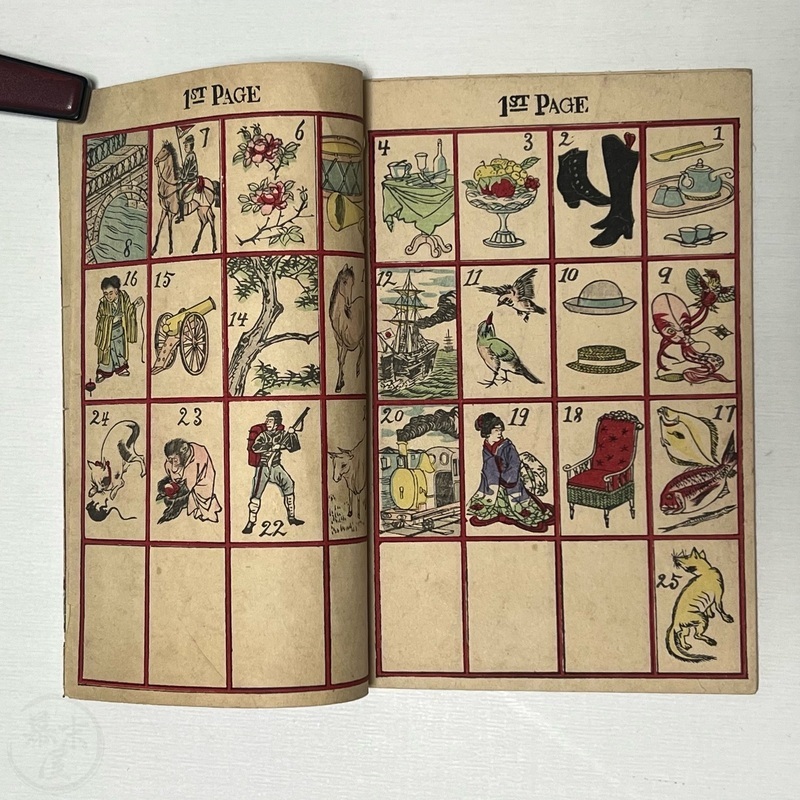 1ST PAGE
8 7 6
16 15 14
24 23 22
1ST PAGE
4 3 2 1
12 11 10 9
20 19 18 17
25
幕末
屋